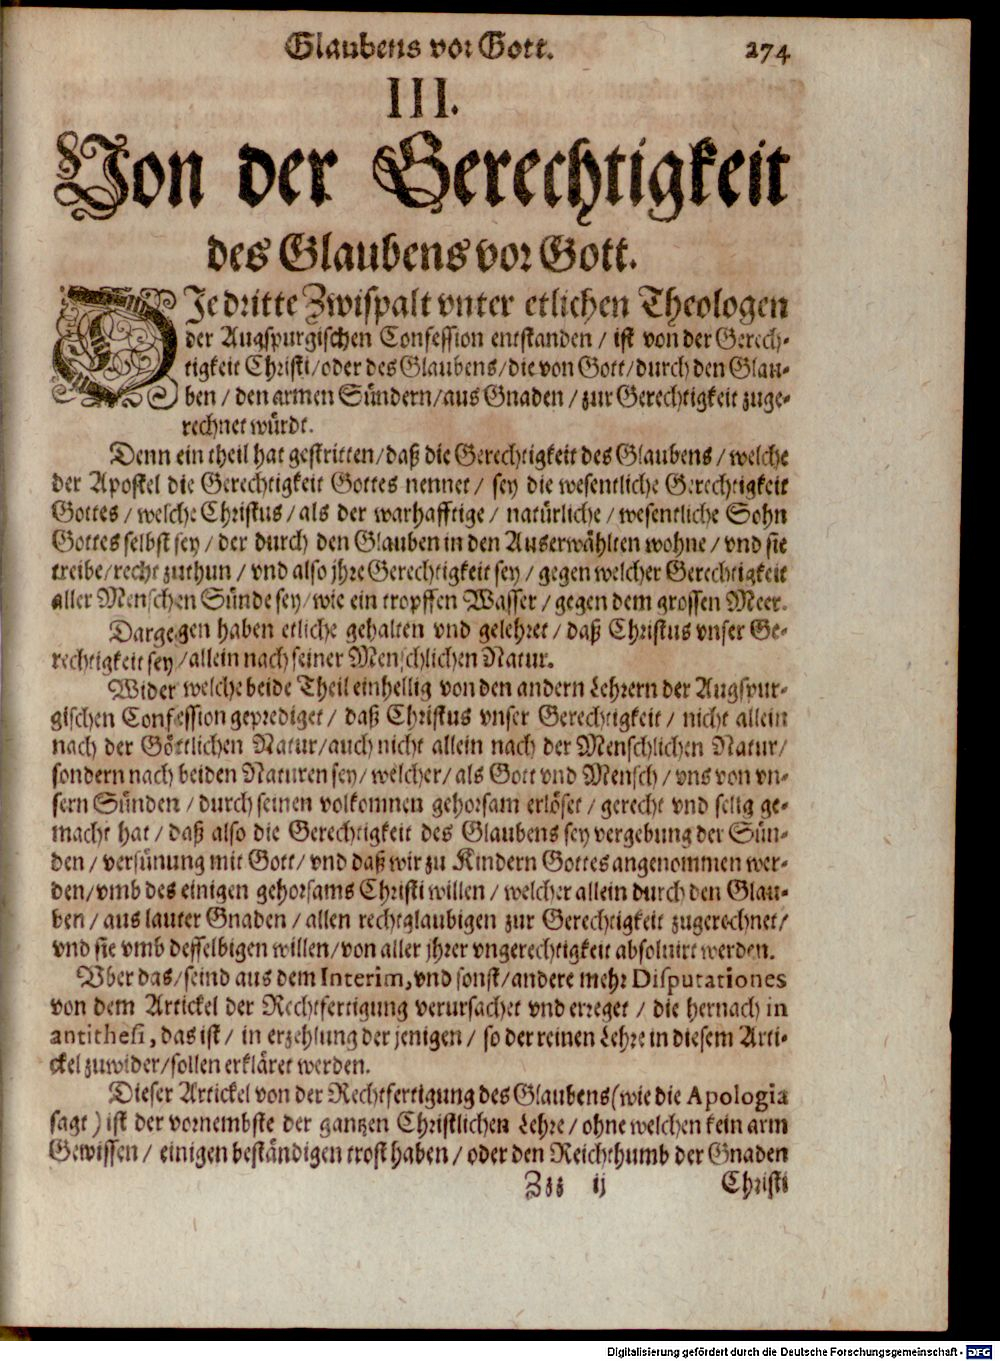 Glaubens vor Gott. 274
III.
Von der Gerechtigkeit
des Glaubens vor Gott.
DIe dritte Zwispalt vnter etlichen Theologen
der Augspurgischen Confession entstanden / ist von der Gerech-
tigkeit Christi/oder des Glaubens/die von Gott/durch den Glau-
ben / den armen Sündern/aus Gnaden / zur Gerechtigkeit zuge-
rechnet würdt.
Denn ein theil hat gestritten/daß die Gerechtigkeit des Glaubens / welche
der Apostel die Gerechtigkeit Gottes nennet / sey die wesentliche Gerechtigkeit
Gottes / welche Christus / als der warhafftige / natürliche / wesentliche Sohn
Gottes selbst sey / der durch den Glauben in den Auserwählten wohne / vnd sie
treibe/recht zuthun / vnd also jhre Gerechtigkeit sey / gegen welcher Gerechtigkeit
aller Menschen Sünde sey/wie ein tropffen Wasser / gegen dem grossen Meer.
Dargegen haben etliche gehalten vnd gelehret / daß Christus vnser Ge-
rechtigkeit sey /allein nach seiner Menschlichen Natur.
Wider welche beide Theil einhellig von den andern Lehrern der Augspur-
gischen Confession geprediget / daß Christus vnser Gerechtigkeit / nicht allein
nach der Göttlichen Natur/auch nicht allein nach der Menschlichen Natur/
sondern nach beiden Naturen sey/welcher/als Gott vnd Mensch / vns von vn-
sern Sünden / durch seinen volkomnen gehorsam erlöset / gerecht vnd selig ge-
macht hat / daß also die Gerechtigkeit des Glaubens sey vergebung der Sün-
den / versünung mit Gott/ vnd daß wir zu Kindern Gottes angenommen wer-
den/vmb des einigen gehorsams Christi willen / welcher allein durch den Glau-
ben / aus lauter Gnaden / allen rechtglaubigen zur Gerechtigkeit zugerechnet/
vnd sie vmb desselbigen willen/von aller jhrer vngerechtigkeit absoluirt werden.
Vber das/seind aus dem Interim, vnd sonst/andere mehr Disputationes
von dem Artickel der Rechtfertigung verursachet vnd erreget / die hernach in
antithesi, das ist / in erzehlung der jenigen / so der reinen Lehre in diesem Arti-
ckel zuwider/sollen erkläret werden.
Dieser Artickel von der Rechtfertigung des Glaubens (wie die Apologia
sagt ) ist der vornembste der gantzen Christlichen Lehre / ohne welchen kein arm
Gewissen / einigen beständigen trost haben / oder den Reichthumb der Gnaden
Zzz ij Christi
Digitalisierung gefördert durch die Deutsche Forschungsgemeinschaft - DFG